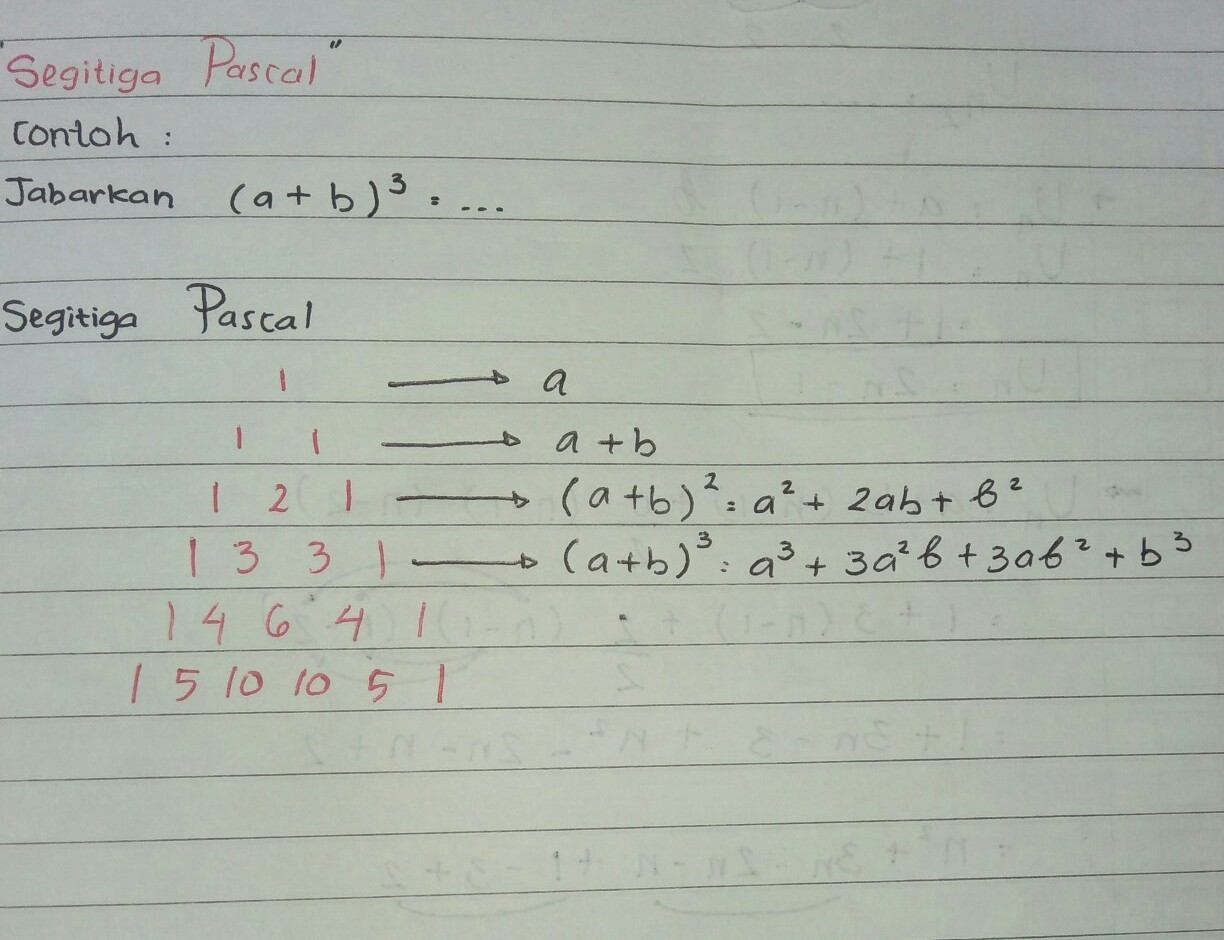 "Segitiga Pascal"
Contoh :
Jabarkan (a + b)³ = ...
Segitiga Pascal
1 → a
1 1 → a + b
1 2 1 → (a+b)² = a² + 2ab + b²
1 3 3 1 → (a+b)³ = a³ + 3a²b + 3ab² + b³
1 4 6 4 1
1 5 10 10 5 1